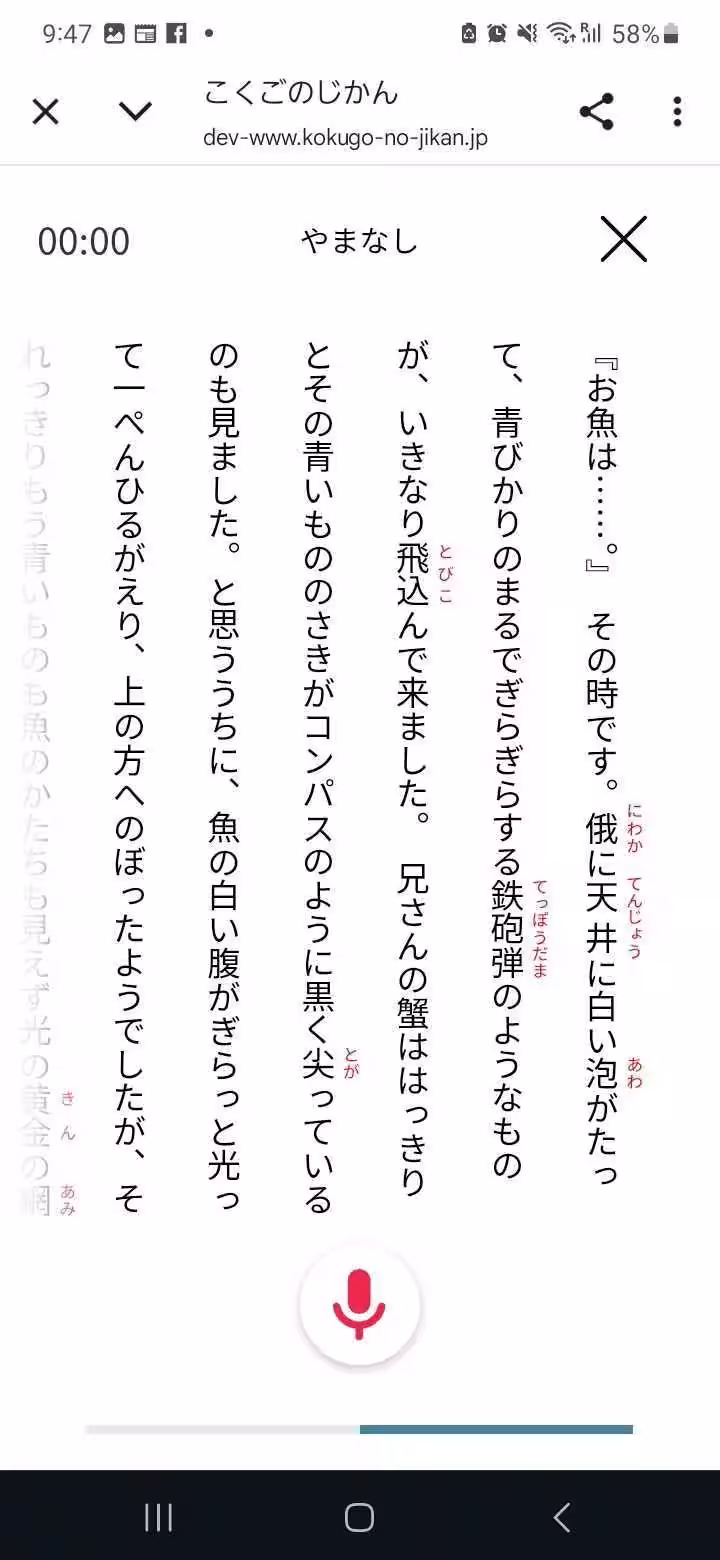 9:47
58%
こくごのじかん
dev-www.kokugo-no-jikan.jp
00:00
やまなし
『お魚は……。』　その時です。俄に天井に白い泡がたっ
にわか
てんじょう
あわ
て、青びかりのまるでぎらぎらする鉄砲弾のようなもの
てっぽうだま
が、いきなり飛込んで来ました。　兄さんの蟹ははっきり
とびこ
とその青いもののさきがコンパスのように黒く尖っている
とが
のも見ました。と思ううちに、魚の白い腹がぎらっと光っ
て一ぺんひるがえり、上の方へのぼったようでしたが、そ
れっきりもう青いものも魚のかたちも見えず光の黄金の網
きん
あみ